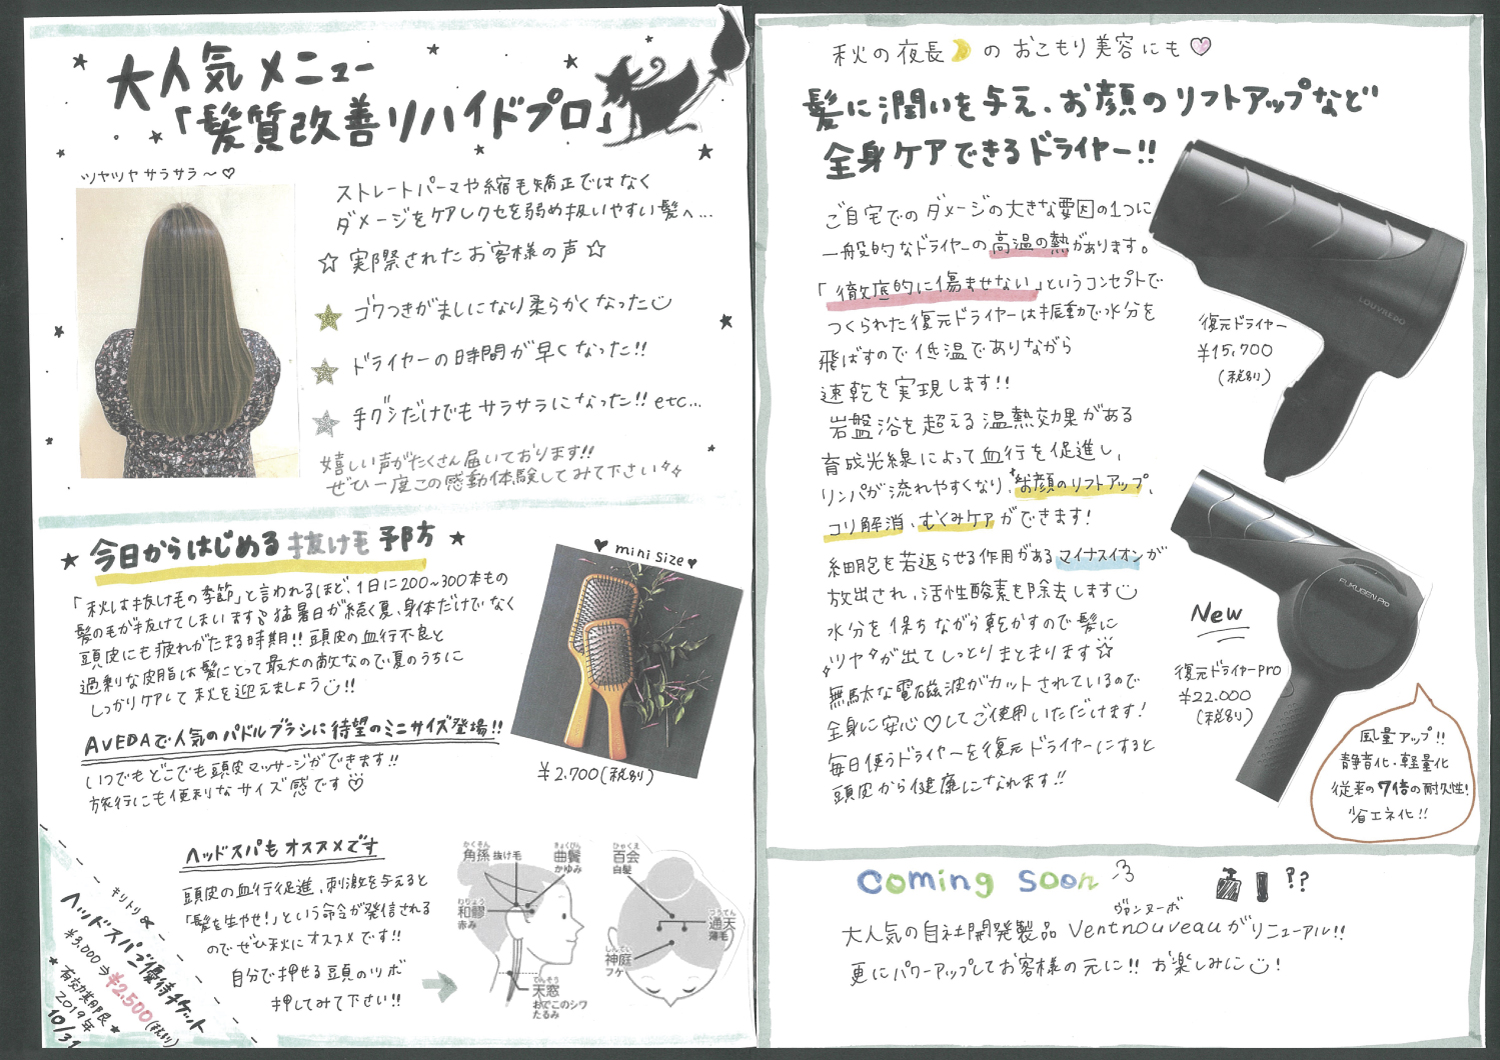 大人気メニュー
「髪質改善リハイドプロ」
ツヤツヤ サラサラ〜♡
ストレートパーマや縮毛矯正ではなく
ダメージをケアしクセを弱め扱いやすい髪へ...
☆ 実際されたお客様の声 ☆
ゴワつきがましになり柔らかくなった
ドライヤーの時間が早くなった!!
手グシだけでもサラサラになった!! etc...
嬉しい声がたくさん届いております!!
ぜひ一度この感動体験してみて下さい
★ 今日からはじめる抜け毛予防 ★
「秋は抜け毛の季節」と言われるほど、1日に200~300本もの
髪の毛が抜けてしまいます 猛暑日が続く夏、身体だけでなく
頭皮にも疲れがたまる時期!! 頭皮の血行不良と
過剰な皮脂は髪にとって最大の敵なので夏のうちに
しっかりケアして秋を迎えましょう!!
♥ mini size ♥
AVEDAで人気のパドルブラシに待望のミニサイズ登場!!
いつでもどこでも頭皮マッサージができます!!
旅行にも便利なサイズ感です
¥2,700(税別)
ヘッドスパもオススメです
頭皮の血行促進、刺激を与えると
「髪を生やせ!」という命令が発信される
のでぜひ秋にオススメです!!
自分で押せる頭のツボ
押してみて下さい!!
かくそん
角孫 抜け毛
きょくびん
曲鬢
かゆみ
わりょう
和髎
赤み
てんそう
天窓
おでこのシワ
たるみ
ひゃくえ
百会
白髪
つうてん
通天
薄毛
しんてい
神庭
フケ
キリトリ
ヘッドスパご優待チケット
¥3,000⇒¥2,500(税別)
★ 有効期限 ★
2019年
10/31
秋の夜長 の おこもり美容にも
髪に潤いを与え、お顔のリフトアップなど
全身ケアできるドライヤー!!
ご自宅でのダメージの大きな要因の1つに
一般的なドライヤーの高温の熱があります。
「徹底的に傷ませない」というコンセプトで
つくられた復元ドライヤーは振動で水分を
飛ばすので低温でありながら
速乾を実現します!!
岩盤浴を超える温熱効果がある
育成光線によって血行を促進し、
リンパが流れやすくなり、お顔のリフトアップ、
コリ解消、むくみケアができます!
細胞を若返らせる作用があるマイナスイオンが
放出され、活性酸素を除去します
水分を保ちながら乾かすので髪に
ツヤが出てしっとりまとまります☆
無駄な電磁波がカットされているので
全身に安心♡してご使用いただけます!
毎日使うドライヤーを復元ドライヤーにすると
頭皮から健康になれます!!
LOUVREDO
復元ドライヤー
¥15,700
(税別)
FUKUGEN Pro
New
復元ドライヤーpro
¥22,000
(税別)
風量アップ!!
静音化・軽量化
従来の7倍の耐久性!
省エネ化!!
Coming soon
??
ヴァンヌーボ
大人気の自社開発製品 Ventnouveauがリニューアル!!
更にパワーアップしてお客様の元に!! お楽しみに!